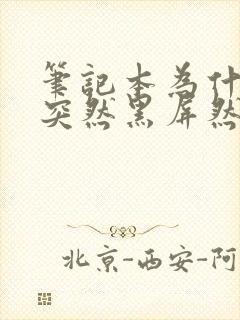 筆記本為什
突然黑屏然
北京-西安-阿